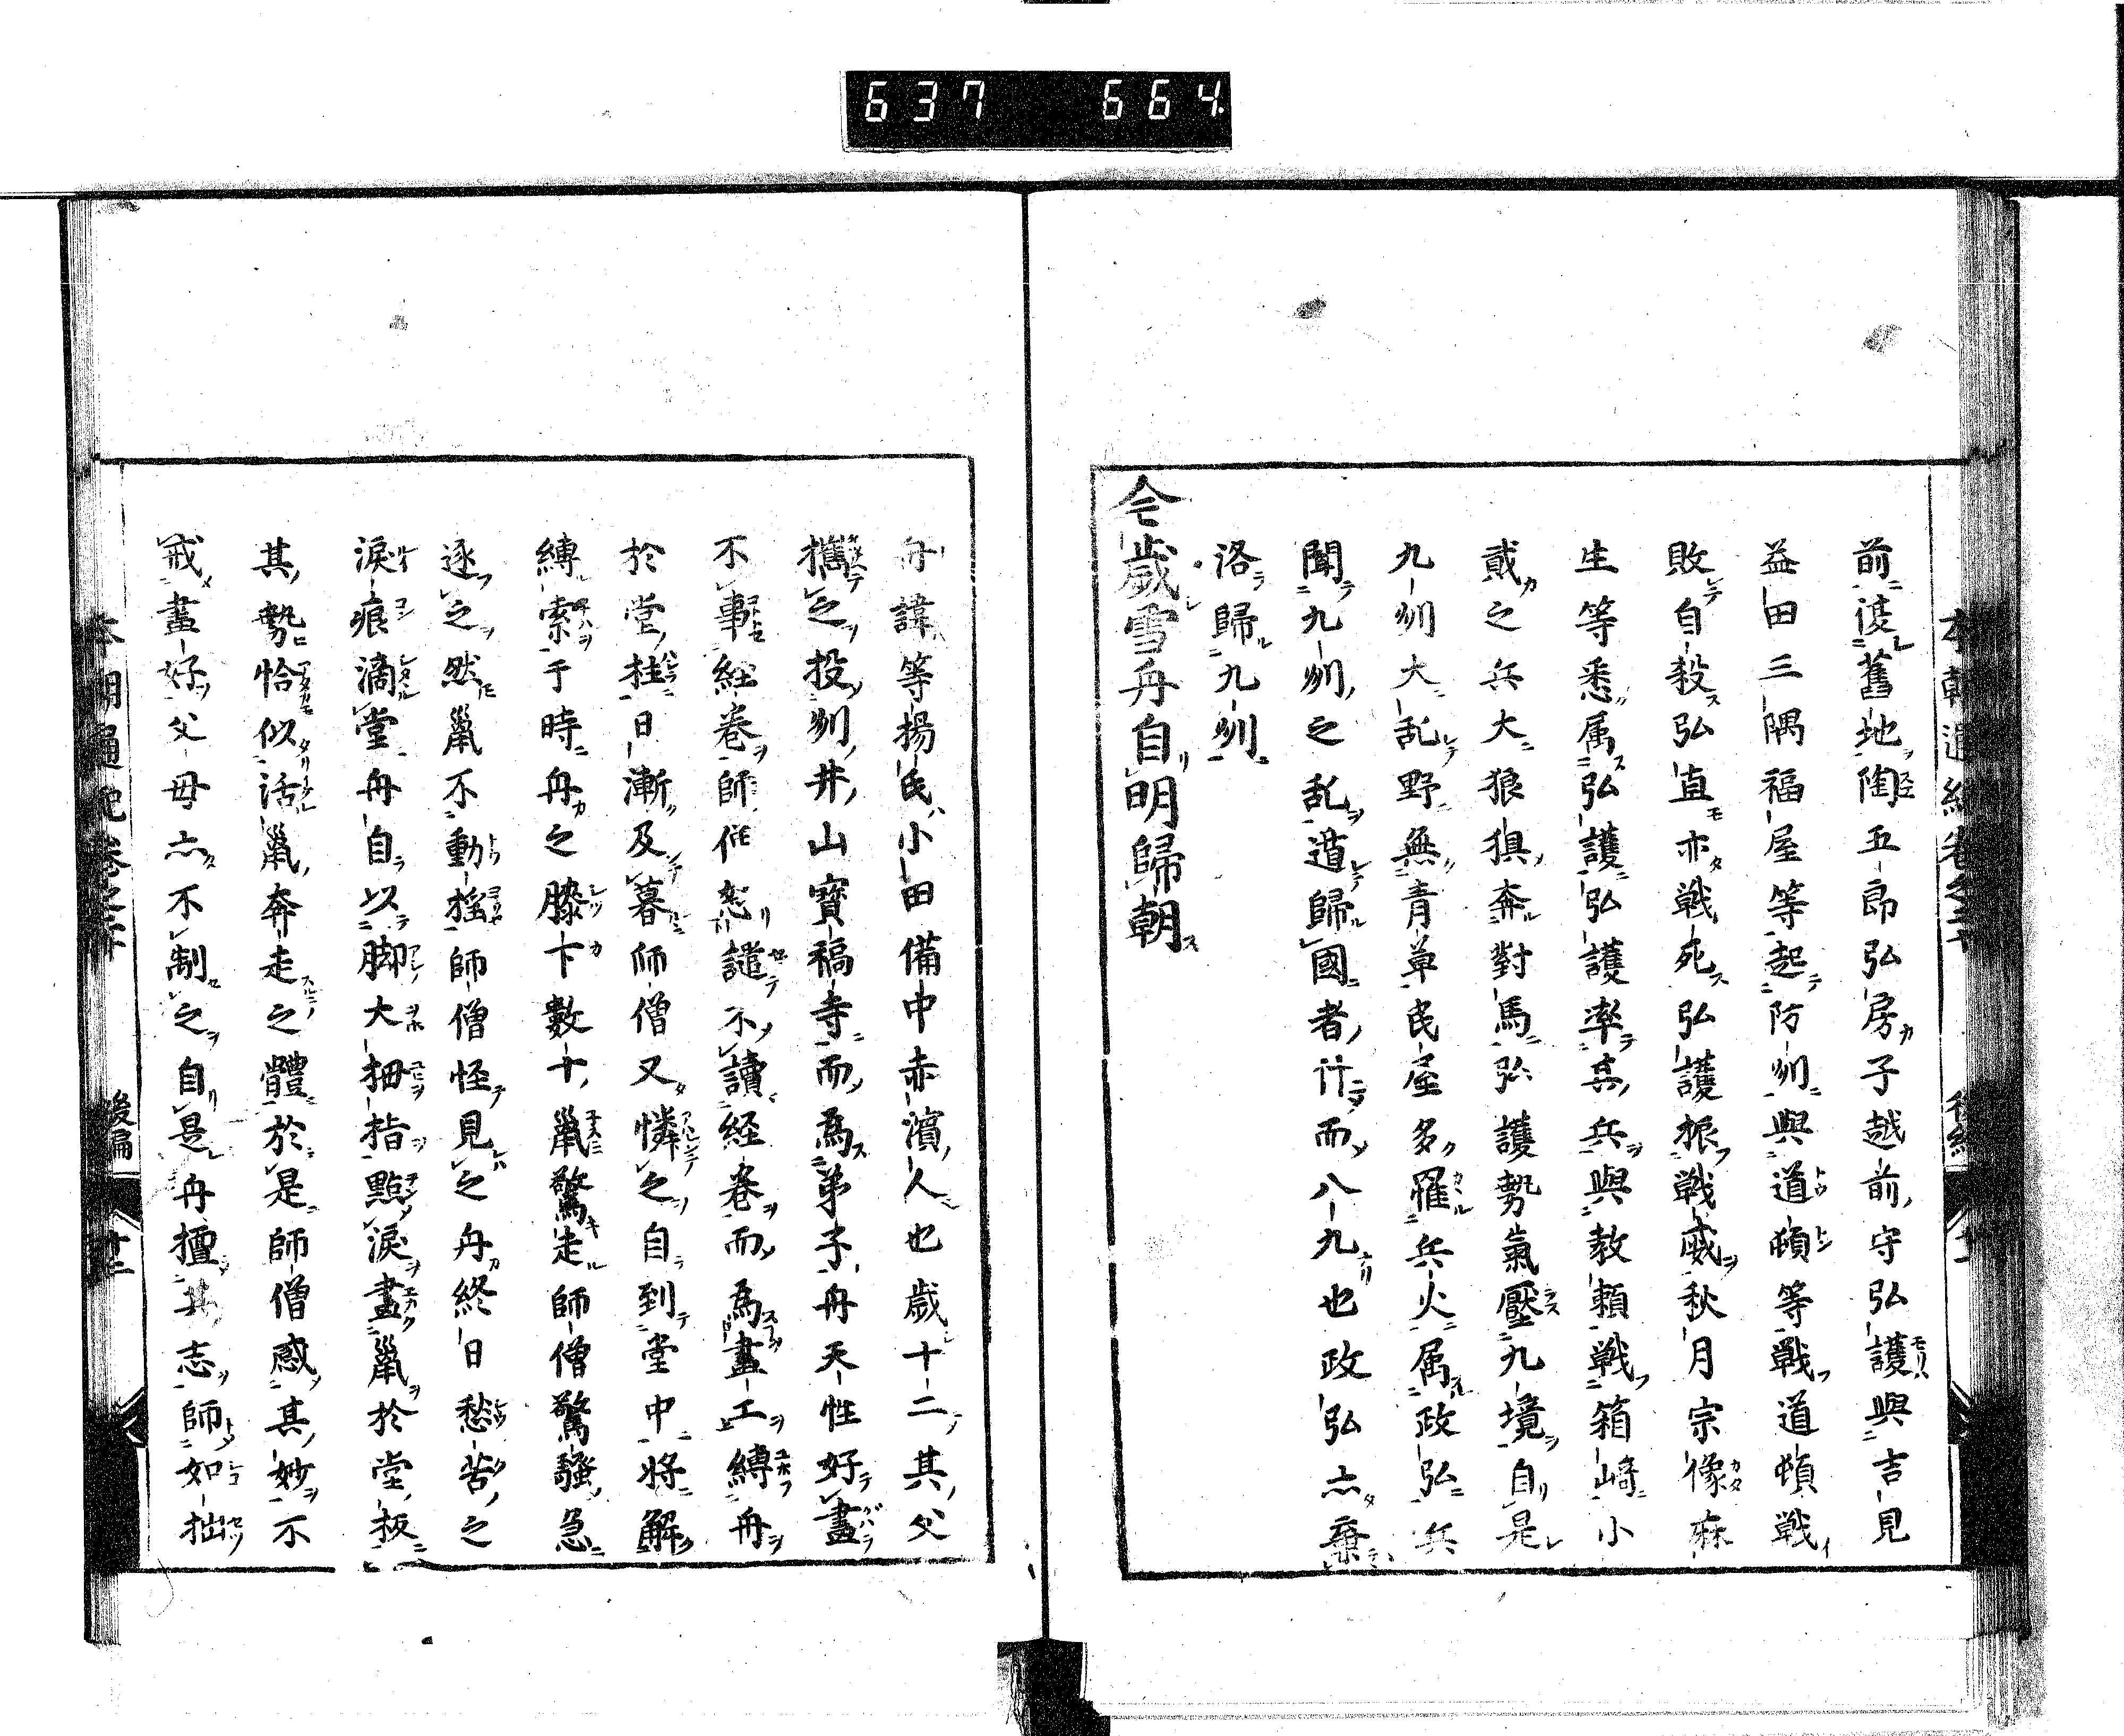 637 664
前復舊地陶五郎弘房子越前守弘護與吉見
益田三隅福屋等起防刕與道頓等戰道頓戰
敗自殺弘直亦戰死弘護振戰威秋月宗像麻
生等悉属弘護弘護率其兵與教頼戰箱崎小
貳之兵大狼狽奔對馬弘護勢氣壓九境自是
九刕大乱野無青草民屋多罹兵火属政弘兵
聞九刕之乱遁歸國者什而八九也政弘亦棄
洛歸九刕
今歳雪舟自明歸朝
舟諱等揚氏小田備中赤濱人也歳十二其父
携之投刕井山寳福寺而為弟子舟天性好畫
不事経巻師僧怒譴不讀経巻而為畫工縛舟
於堂柱日漸及暮師僧又憐之自到堂中將解
縛索于時舟之膝下數十鼠驚走師僧驚騒急
逐之然鼠不動揺師僧怪見之舟終日愁苦之
涙痕滴堂舟自以脚大拇指點涙畫鼠於堂板
其勢恰似活鼠奔走之體於是師僧感其妙不
戒畫好父母亦不制之自是舟擅其志師如拙
本朝通紀巻之 後編 十二